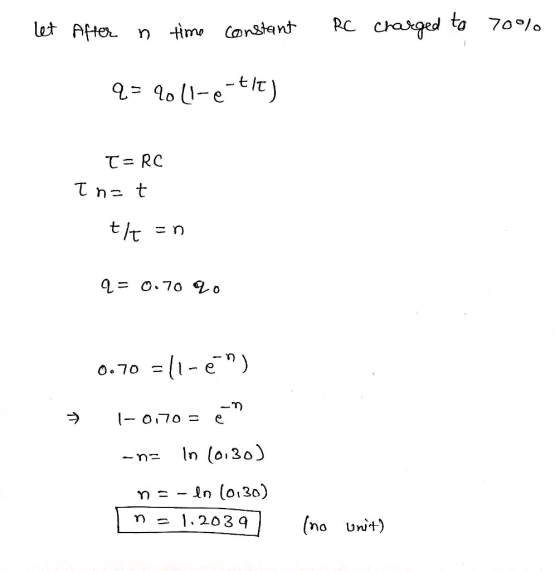 let After n time constant RC charged to 70%
q = q0 (1-e^-t/τ)
τ = RC
τ n = t
t/τ = n
q = 0.70 q0
0.70 = (1-e^-n)
⇒ 1-0.70 = e^-n
-n = ln (0.30)
n = - ln (0.30)
n = 1.2039 (no unit)